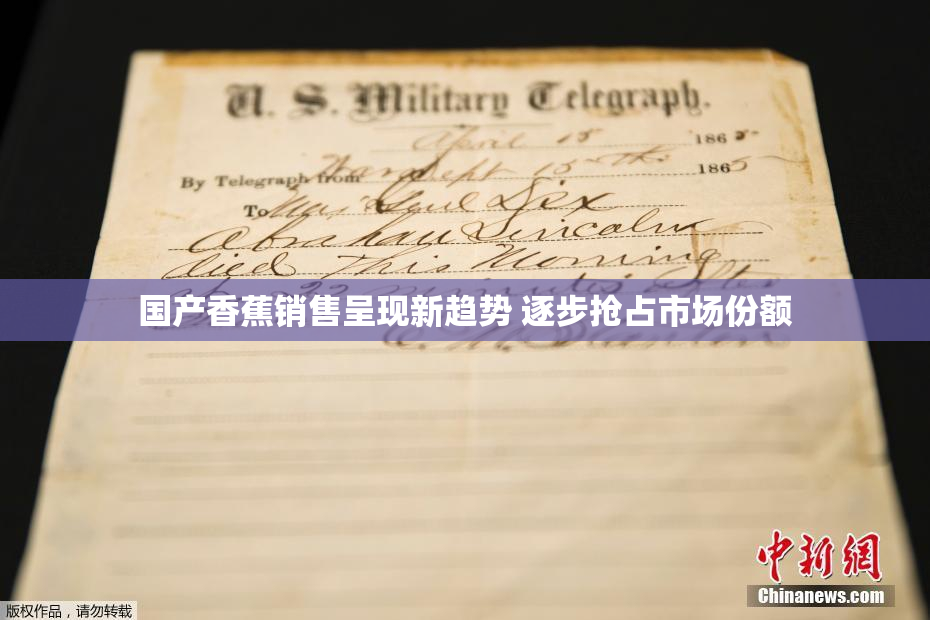 U. S. Military Telegraph.
April 15 1865
By Telegraph from War Dept 15th 1865
To Maj Genl Dix
Abraham Lincoln
died This Morning
国产香蕉销售呈现新趋势 逐步抢占市场份额
22 minutes after
中新網
Chinanews.com
版权作品，请勿转载